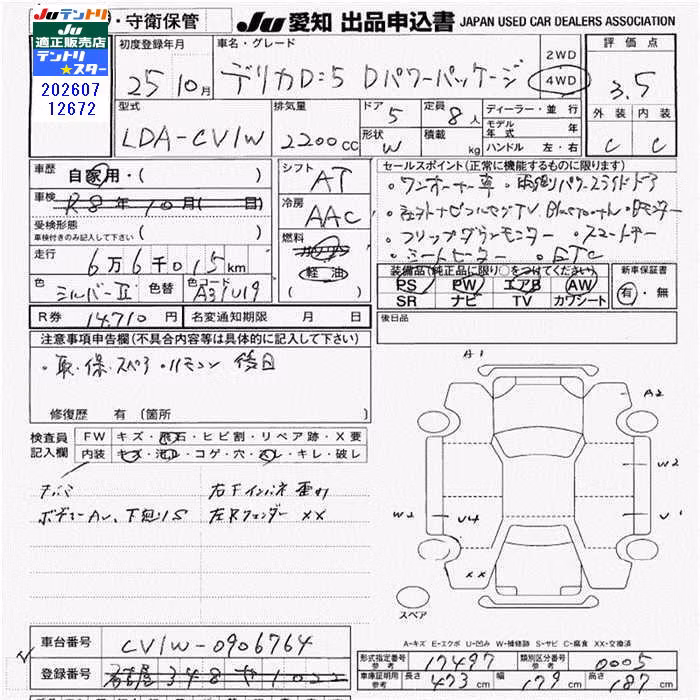 JUテントリ
JU
適正販売店
テントリ
★スター
202607
12672
・守衛保管
JU 愛知 出品申込書 JAPAN USED CAR DEALERS ASSOCIATION
初度登録年月
25 10月
車名・グレード
デリカD:5 Dパワーパッケージ
2WD
4WD
評価点
3.5
外装 内装
C C
型式
LDA-CV1W
排気量
2200CC
ドア
5
定員
8人
形状
W
積載
kg
ディーラー・並行
モデル年式 年
ハンドル 左・右
車歴
自家用・( )
車検
R8年10月( 日)
受検形態
車検付きのみ記入して下さい( )
走行
6万6千015km
色
シルバーII
色替
色コード
A31/U19
シフト
AT
冷房
AAC
燃料
軽油
( )
セールスポイント(正常に機能するものに限ります)
・ワンオーナー車・両側パワースライドドア
・フリップダウンモニター
・シートヒーター ・ETC
装備品(純正品に限り〇をつけてください)
PS PW エアB AW
SR ナビ TV カワシート
新車保証書
有・無
後日品
R券 14,710円
名変通知期限 月 日
注意事項申告欄(不具合内容等は具体的に記入して下さい)
・取・保・スペア・リモコン 後日
修復歴 有(箇所 )
検査員
記入欄
FW キズ・飛石・ヒビ割・リペア跡・X要
内装 キズ・汚レ・コゲ・穴・スレ・キレ・破レ
ボデーAU、下廻りS
左Rフェンダー XX
A1
A2
W2
U1
W2
U4
XX
スペア
A-キズ E-エクボ U-凹み W-補修跡 S-サビ C-腐食 XX-交換済
車台番号
CV1W-0906764
登録番号
名古屋 348 や 1022
形式指定番号
参考
17497
類別区分番号
参考
0005
車庫証明用
参考
長さ 473cm 幅 179cm 高さ 187cm